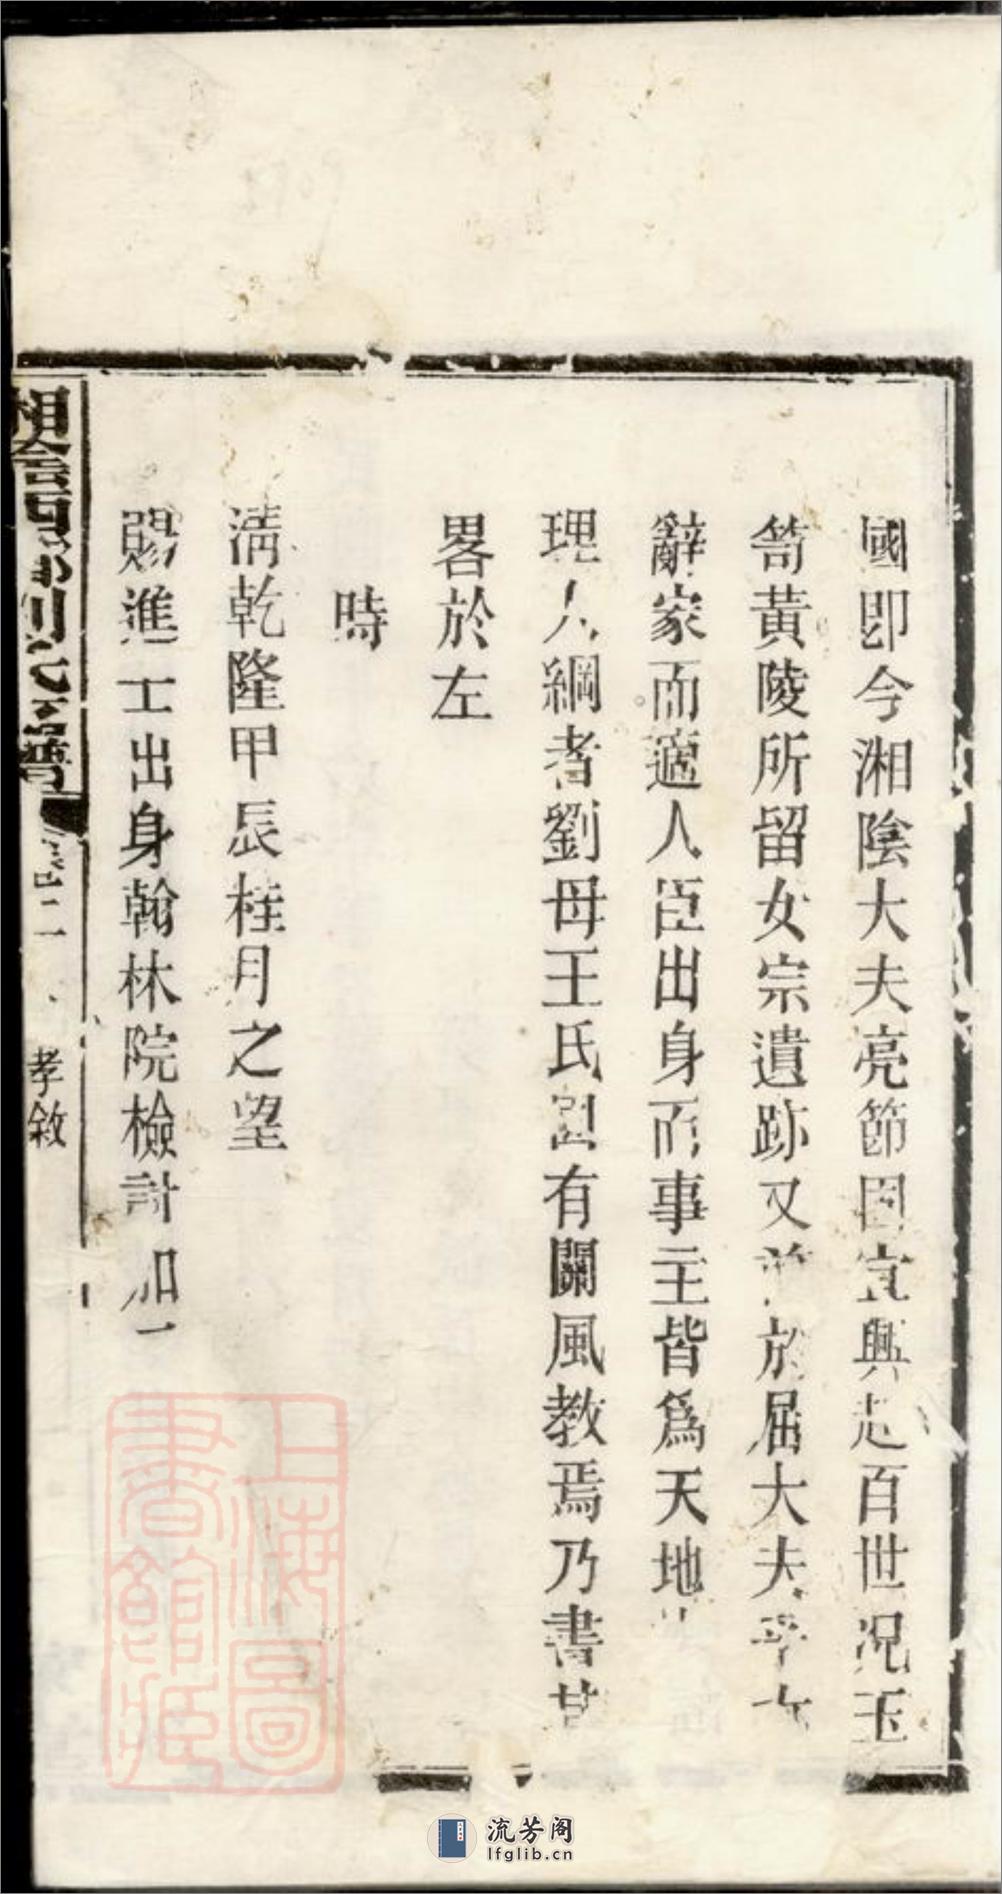 國即今湘陰大夫亮節固宜興起百世況玉
笥黃陵所留女宗遺跡又並於屈大夫乎女
辭家而適人臣出身而事主皆爲天地
理人綱者劉母王氏洵有關風教焉乃書其
畧於左
時
淸乾隆甲辰桂月之望
賜進士出身翰林院檢討加一
湘陰西鄉劉氏族譜 卷二 孝敘
上海圖
書館藏
流芳阁
lfglib.cn